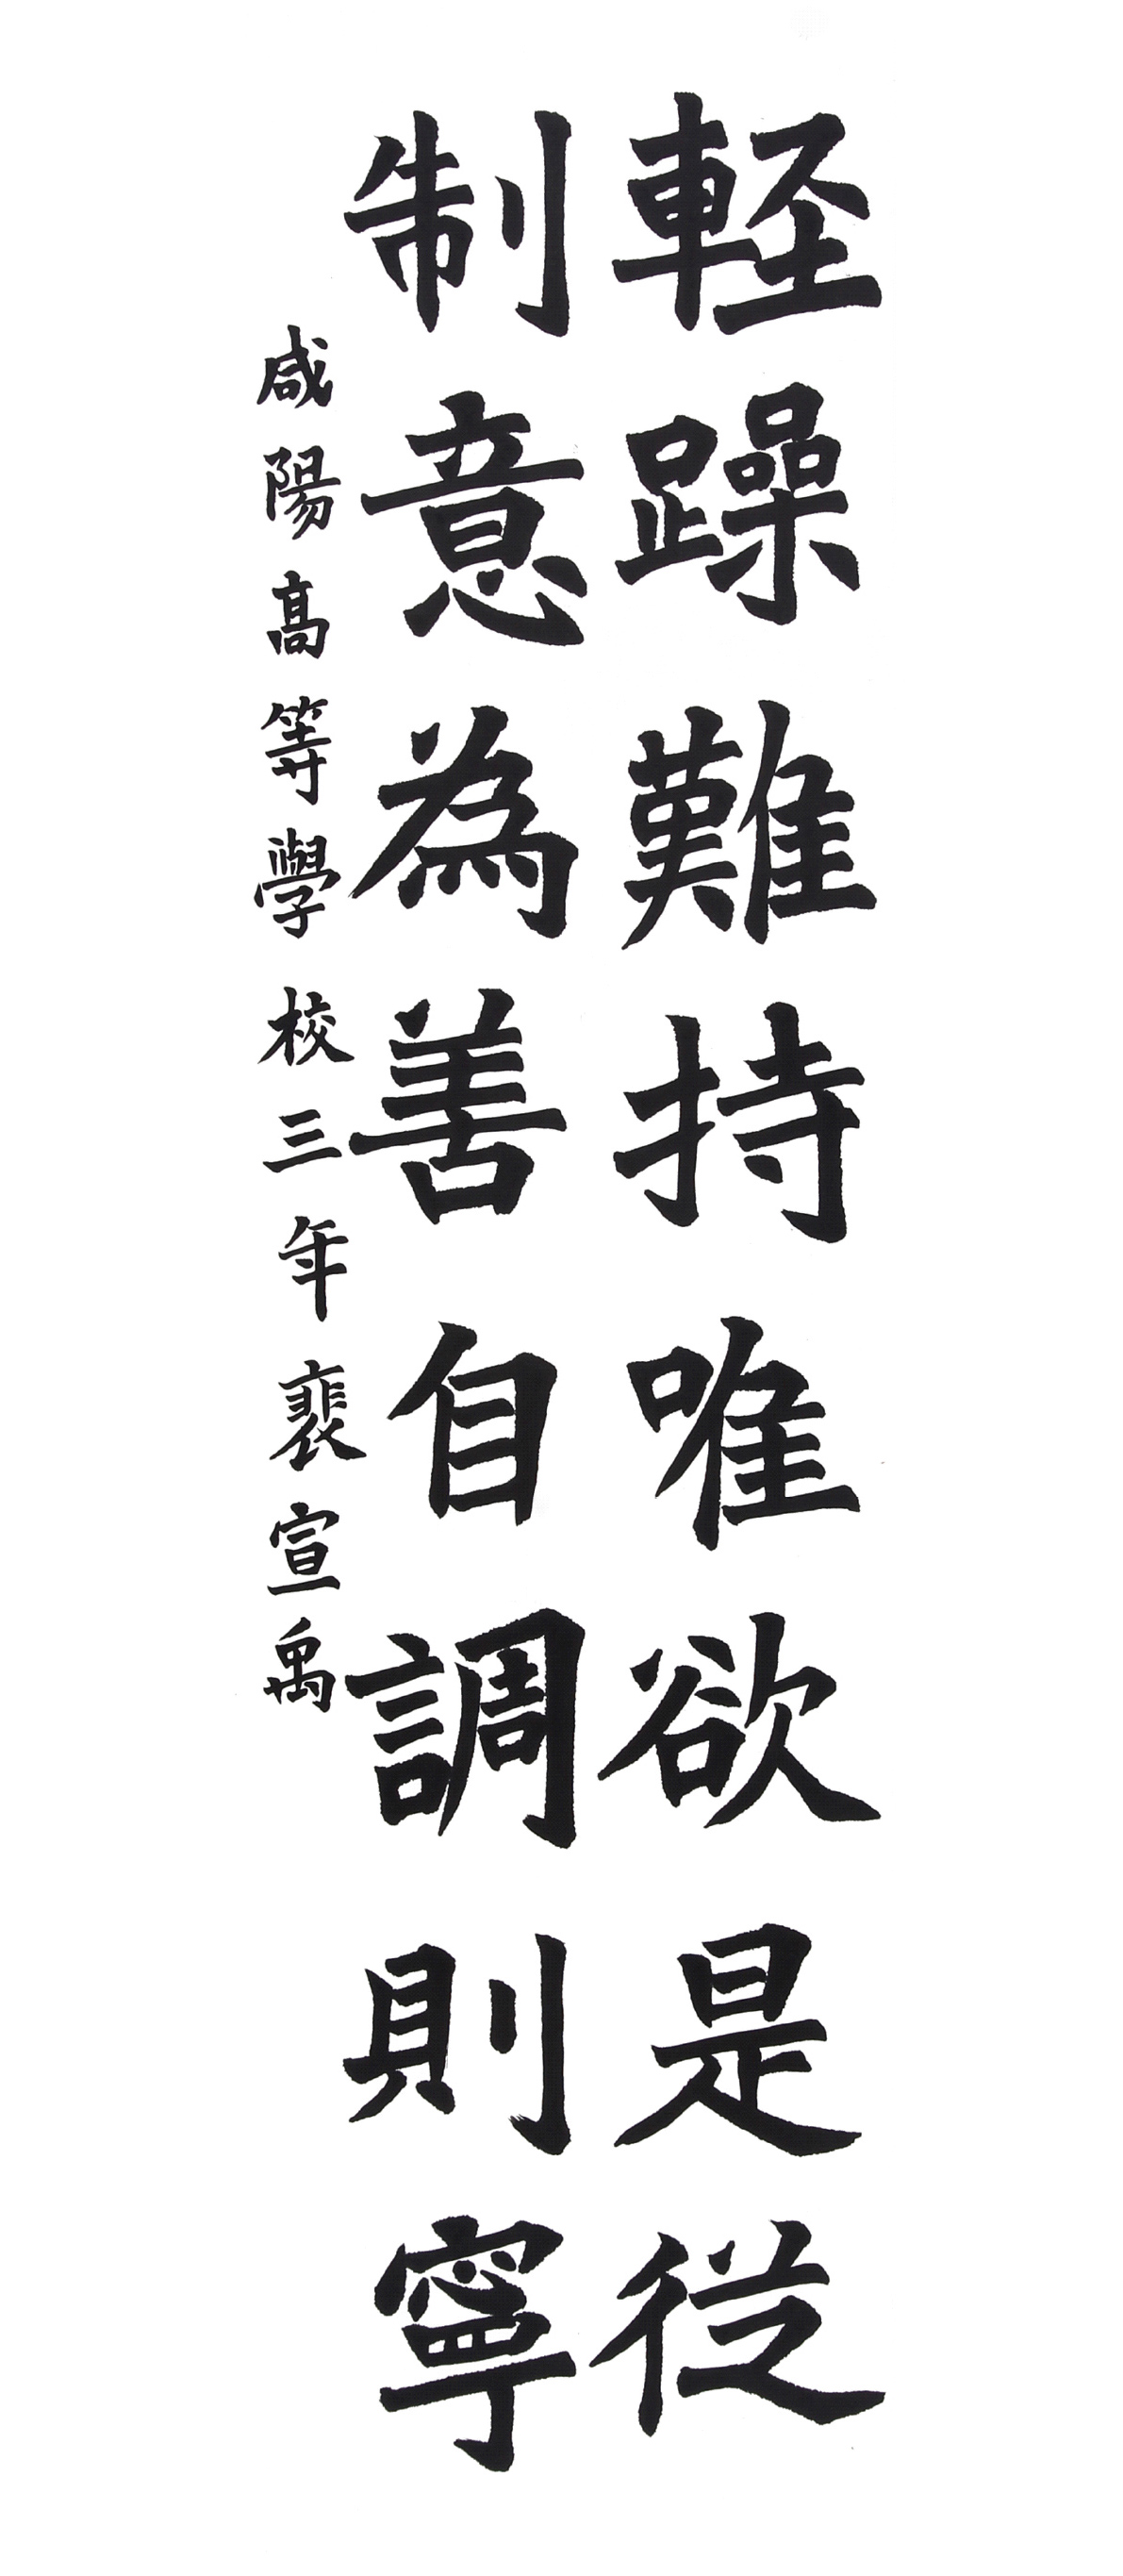 軽躁難持唯欲是従
制意為善自調則寧
咸陽高等學校三年裵宣禹